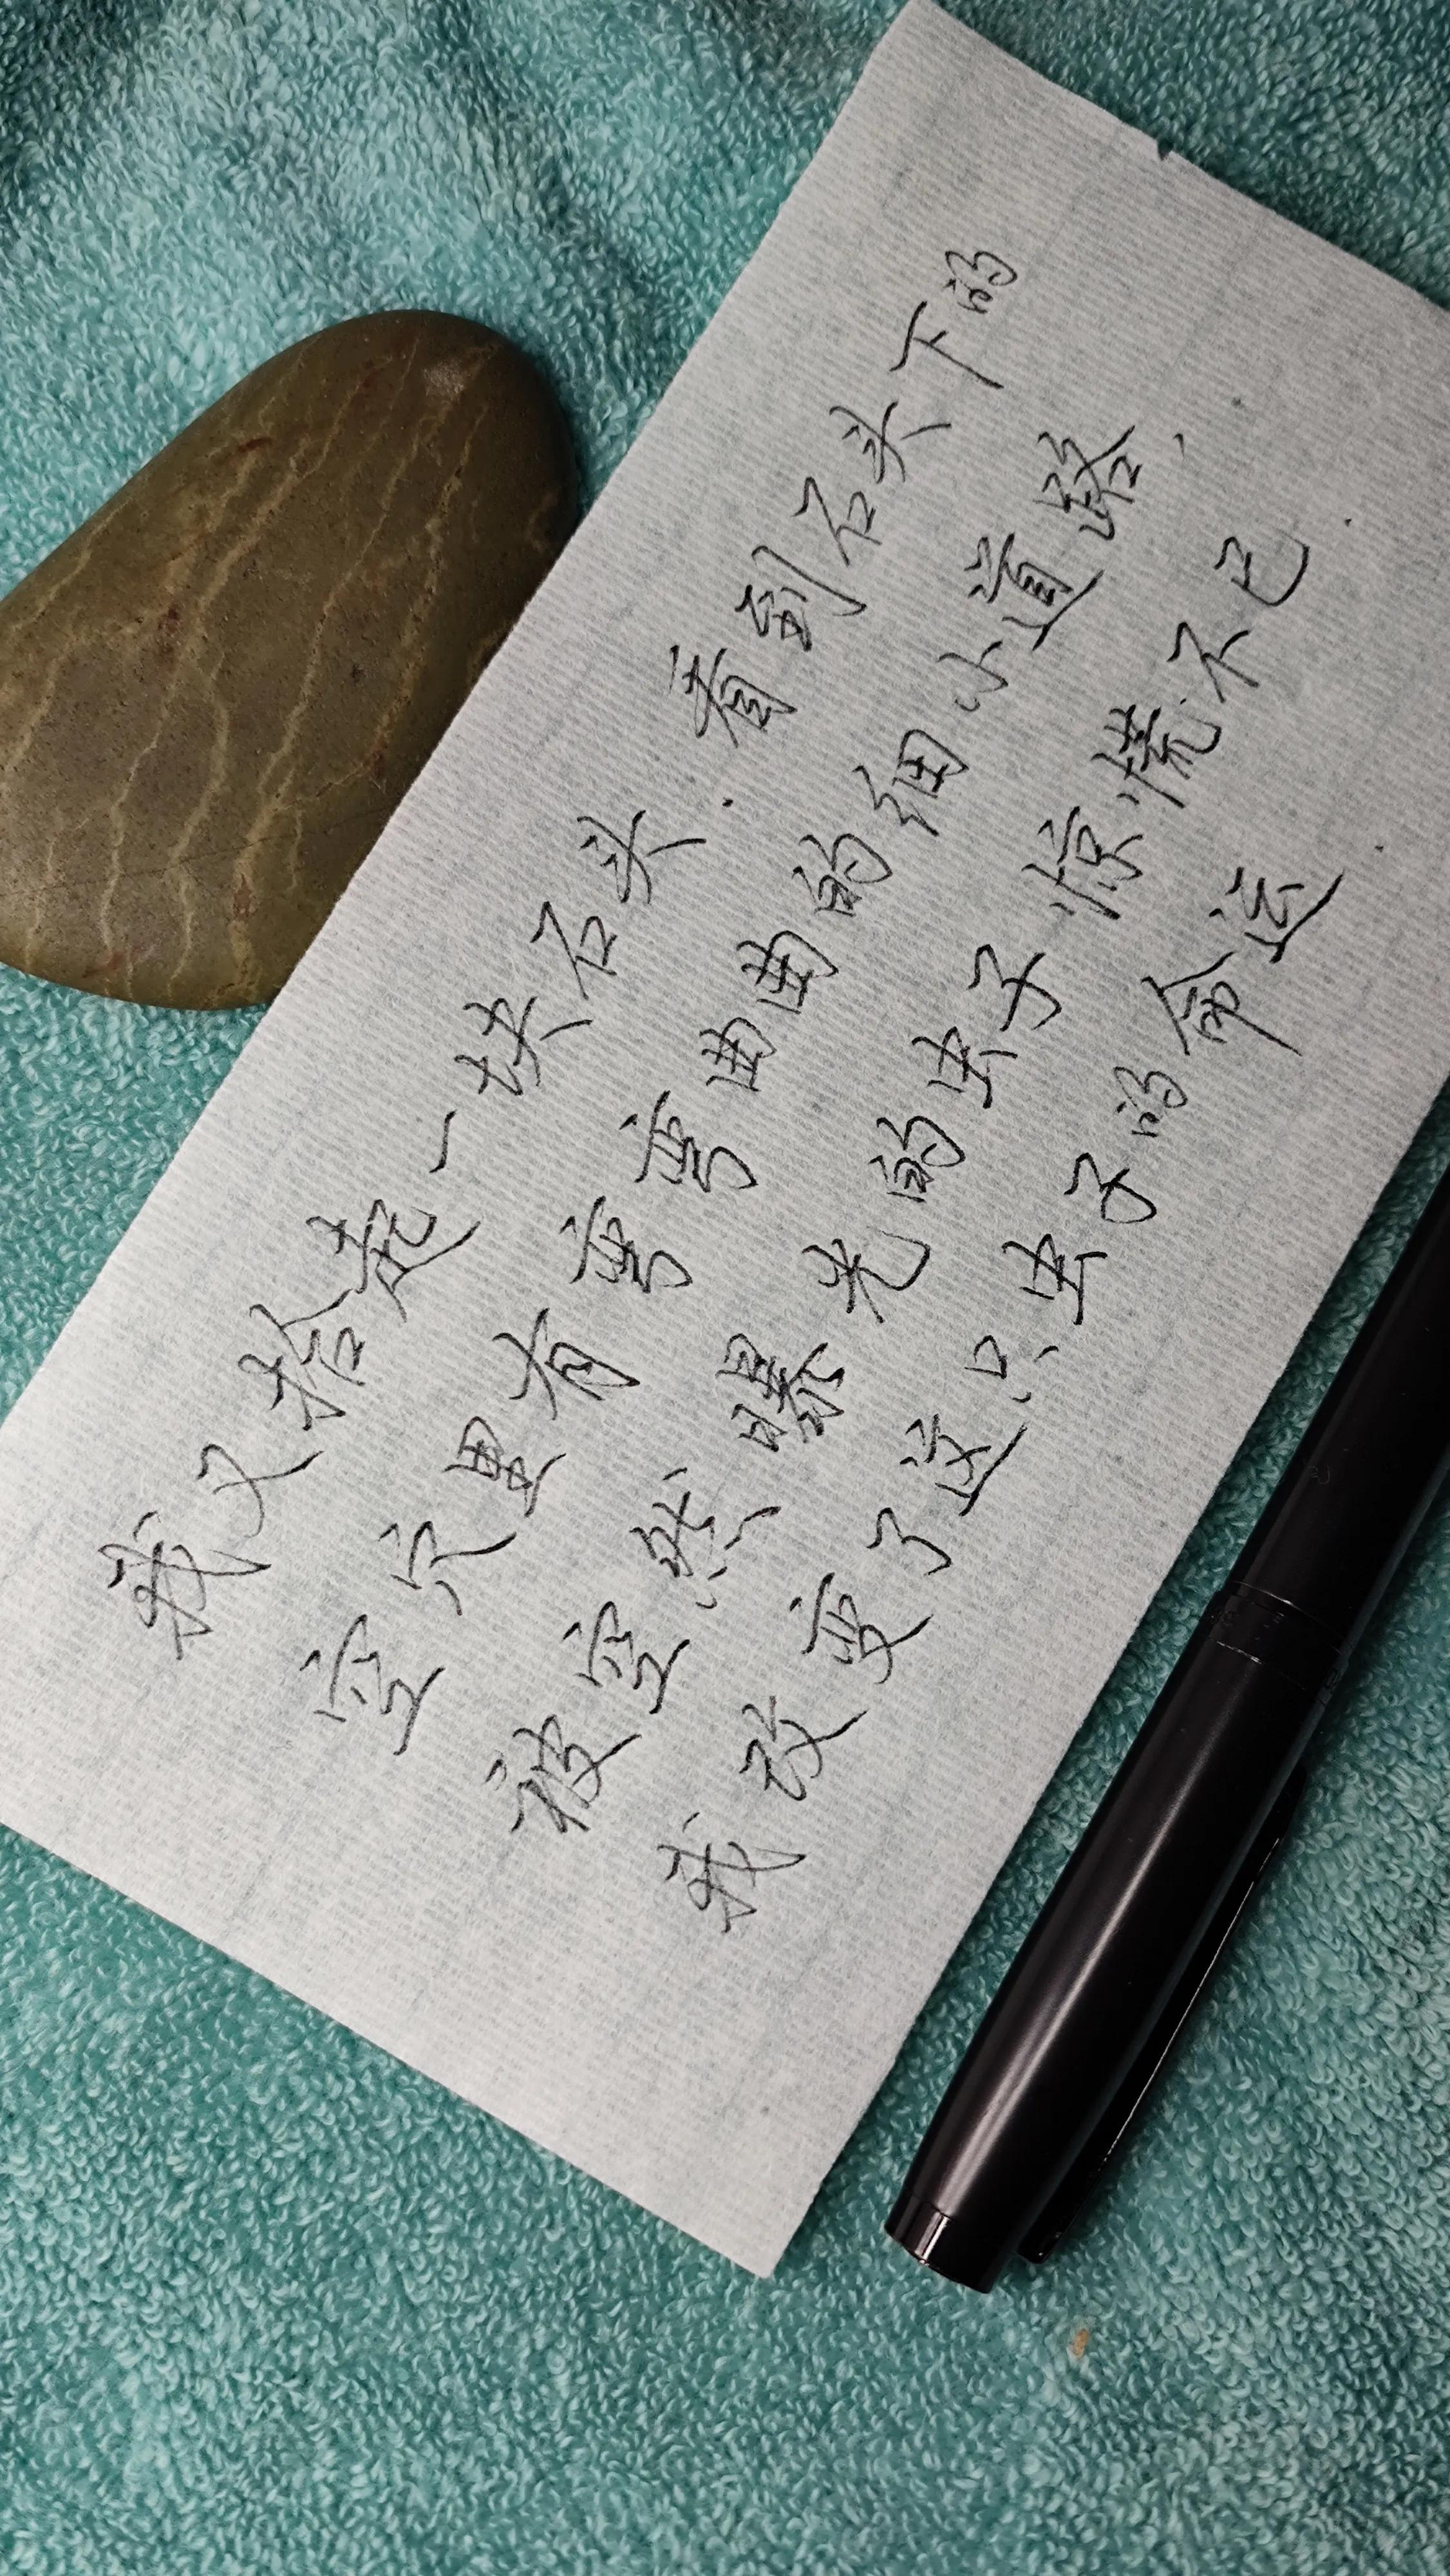 我又拾起一块石头.看到石头下的
空穴里有弯弯曲曲的细小道路,
被突然曝光的虫子惊慌不已.
我改变了这只虫子的命运.